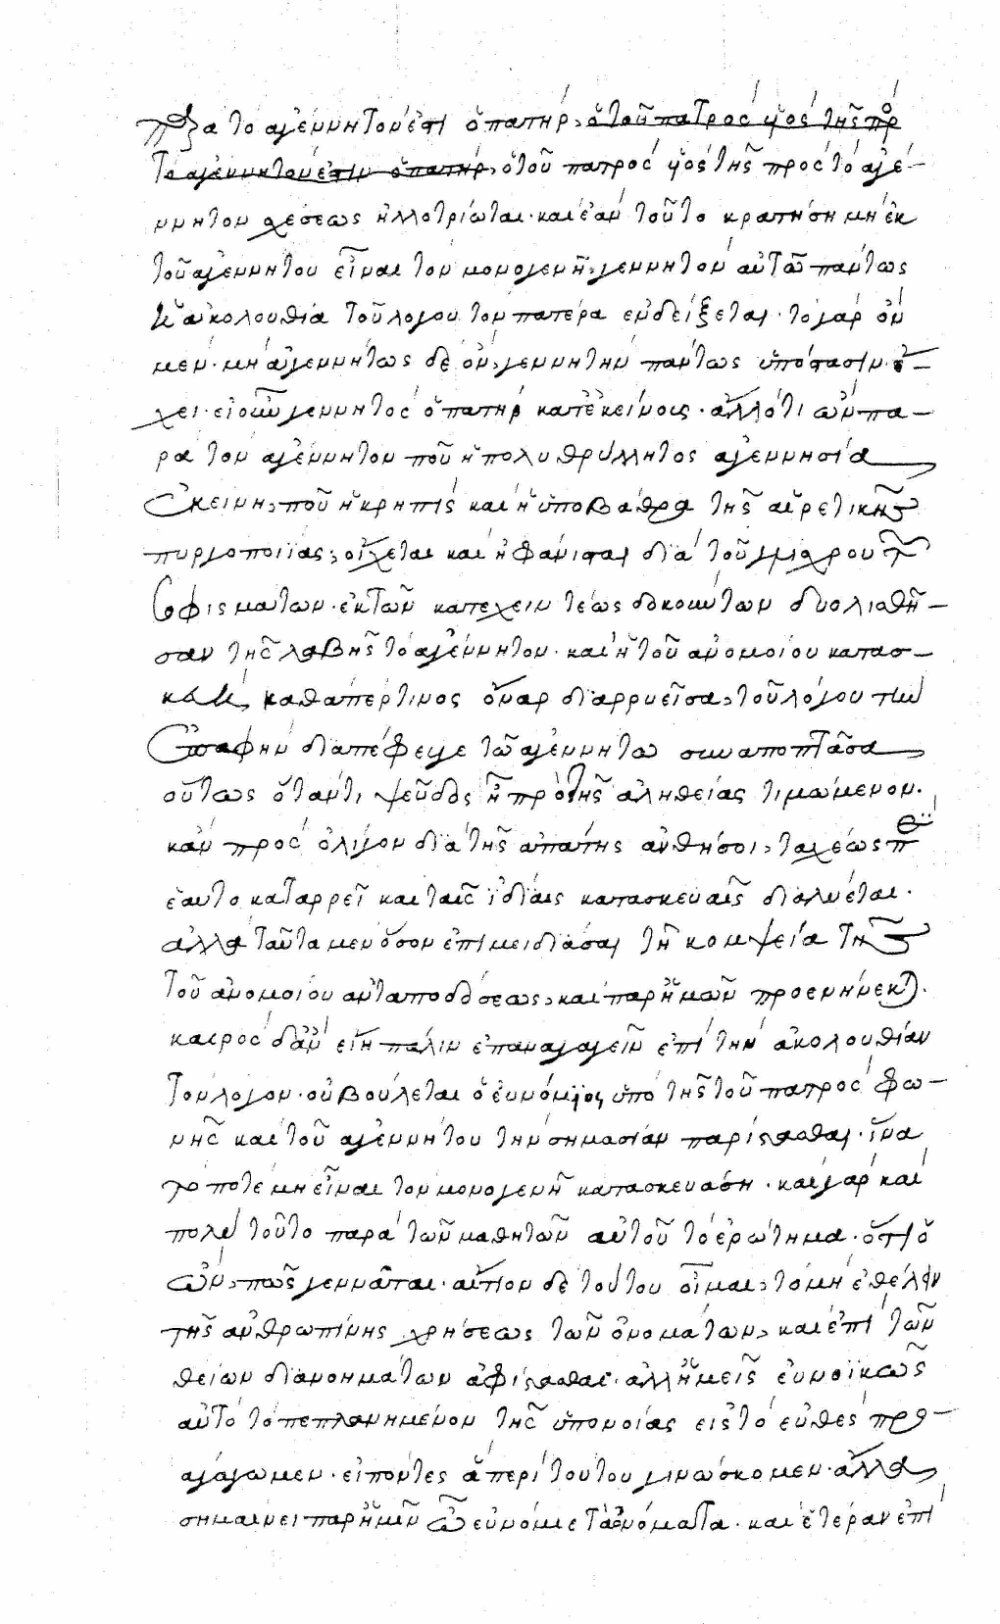 πρὸς τὸ ἀγέννητόν ἐστι ὁ πατήρ, ὁ τοῦ πατρὸς υἱὸς τῆς πρὸς
τὸ ἀγέννητόν ἐστιν ὁ πατήρ, ὁ τοῦ πατρὸς υἱὸς τῆς πρὸς τὸ ἀγέ-
ννητον σχέσεως ἠλλοτρίωται· καὶ ἐὰν τοῦτο κρατήση μὴ ἐκ
τοῦ ἀγεννήτου εἶναι τὸν μονογενῆ, γεννητὸν αὐτῶ πάντως
ἡ ἀκολουθία τοῦ λόγου τὸν πατέρα ἐνδείξεται· τὸ γὰρ ὂν
μέν· μὴ ἀγεννήτως δὲ ὂν, γεννητὴν πάντως ὑπόστασιν ἔ-
χει· εἰ οὖν γεννητὸς ὁ πατὴρ κατ' ἐκείνοις· ἄλλό τι ὢν πα-
ρὰ τὸν ἀγέννητον ποῦ ἡ πολυθρύλλητος ἀγεννησία
ἐκείνη, ποῦ ἡ κρηπὶς καὶ ἡ ὑποβάθρα τῆς αἱρετικῆς
πυργοποιΐας, οἴχεται καὶ ἠφάνισται διὰ τοῦ γλίσχρου τῶν
σοφισμάτων· ἐκ τῶν κατέχειν τέως δοκούντων διολισθῆ-
σαν τῆς λαβῆς τὸ ἀγέννητον· καὶ ἡ τοῦ ἀνομοίου κατασ-
κευὴ, καθάπερ τινος ὄναρ διαρρυεῖσα, τοῦ λόγου τὴν
ἐπαφὴν διαπέφευγε τῶ ἀγεννήτω συναποπτᾶσα
οὕτως ὅταν τι ψεῦδος ᾖ πρὸ τῆς ἀληθείας τιμώμενον·
κἂν πρὸς ὀλίγον διὰ τῆς ἀπάτης ἀνθήσοι, ταχέως περὶ
ἑαυτὸ καταρρεῖ καὶ ταῖς ἰδίαις κατασκευαῖς διαλύεται·
ἀλλὰ ταῦτα μὲν ὅσον ἐπιμειδιᾶσαι τῆ κομψεία τῆς
τοῦ ἀνομοίου ἀνταποδόσεως, καὶ παρ' ἡμῶν προενηνέκται·
καιρὸς δ' ἂν εἴη πάλιν ἐπαναγαγεῖν ἐπὶ τὴν ἀκολουθίαν
τὸν λόγον· οὐ βούλεται ὁ εὐνόμιος ὑπὸ τῆς τοῦ πατρὸς φω-
νῆς καὶ τοῦ ἀγεννήτου τὴν σημασίαν παρίστασθαι· ἵνα
τὸ ποτὲ μὴ εἶναι τὸν μονογενῆ κατασκευάση· καὶ γὰρ καὶ
πολὺ τοῦτο παρὰ τῶν μαθητῶν αὐτοῦ τὸ ἐρώτημα· ὅτι ὁ
ὢν, πῶς γεννᾶται· αἴτιον δὲ τούτου οἶμαι, τὸ μὴ ἐθέλειν
τῆς ἀνθρωπίνης χρήσεως τῶν ὀνομάτων, καὶ ἐπὶ τῶν
θείων διανοημάτων ἀφίστασθαι· ἀλλ' ἡμεῖς εὐνοϊκῶς
αὐτὸ τὸ πεπλανημένον τῆς ὑπονοίας εἰς τὸ εὐθὲς προ-
αγάγωμεν· εἰπόντες ἃ περὶ τούτου γινώσκομεν· ἄλλα
σημαίνει παρ' ἡμῖν ὦ εὐνόμιε τὰ ὀνόματα· καὶ ἑτέραν ἐπὶ